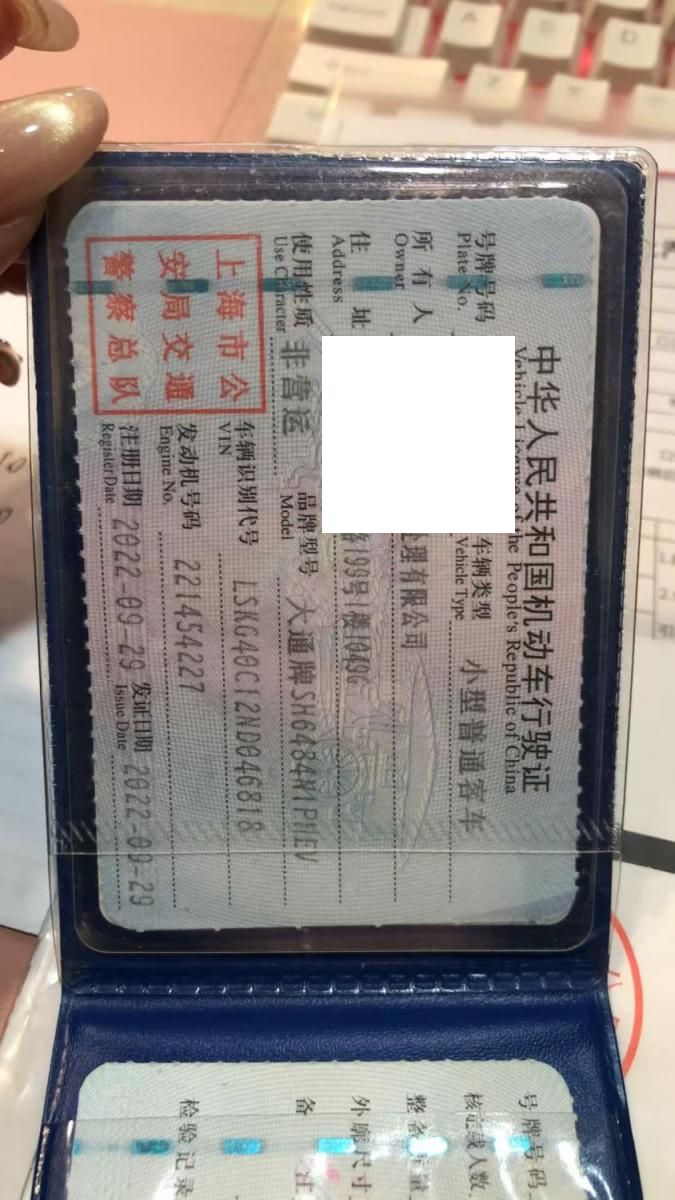 中华人民共和国机动车行驶证
Vehicle License of the People's Republic of China
号牌号码
Plate No.
车辆类型 小型普通客车
Vehicle Type
所有人 理有限公司
Owner
住址 199号1楼1049G
Address
使用性质 非营运 品牌型号 大通牌SH6484N1PHEV
Use Character Model
上海市公
安局交通
警察总队
车辆识别代号 LSKG40C12ND046818
VIN
发动机号码 221454227
Engine No.
注册日期 2022-09-29 发证日期 2022-09-29
Register Date Issue Date
号牌号码
核定载人数
整备质量
外廓尺寸
备注
检验记录
A
D